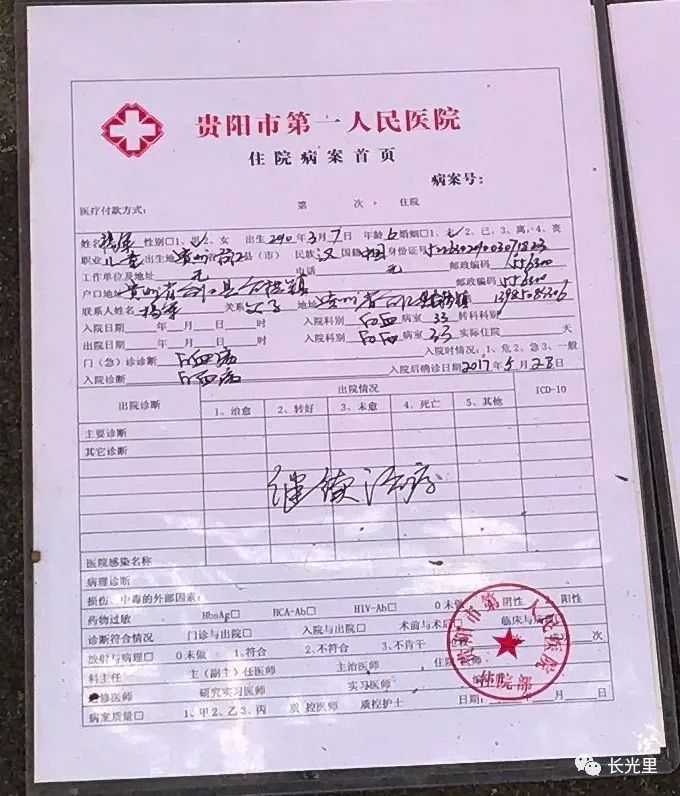 贵阳市第一人民医院
住院病案首页
病案号：
医疗付款方式： 第 次， 住院
姓名 性别口1、男2、女 出生 年3月7日 年龄6 婚姻口1、未2、已，3、离，4、丧
职业儿童 出生地贵州省台江县（市） 民族汉 国籍中国 身份证号
工作单位及地址 无 电话 无 邮政编码 556300
户口地址贵州省台江县 镇 邮政编码 556300
联系人姓名 关系父子 地址贵州省台江县 镇
入院日期 年 月 日 时 入院科别 白血 病室 33 转科科别
出院日期 年 月 日 时 入院科别 白血 病室 33 实际住院 天
门（急）诊诊断 白血病 入院时情况：1、危2、急3、一般
入院诊断 白血病 入院后确诊日期2017年5月28日
出院诊断 出院情况 ICD-10
1、治愈 2、转好 3、未愈 4、死亡 5、其他
主要诊断
其它诊断
继续治疗
医院感染名称
病理诊断
损伤、中毒的外部因素：
药物过敏 HbsAg口 HCA-Ab口 HIV-Ab口 0未做 阴性 阳性
诊断符合情况 门诊与出院口 入院与出院口 术前与术后口 临床与病
放射与病理口 0未做 1、符合 2、不符合 3、不肯干 次
科主任 主（副主）任医师 主治医师 住院
进修医师 研究实习医师 实习医师
病案质量口 1、甲2、乙3、丙 质控医师 质控护士 日期： 年 月 日
贵阳市第一人民医院
住院部
长光里